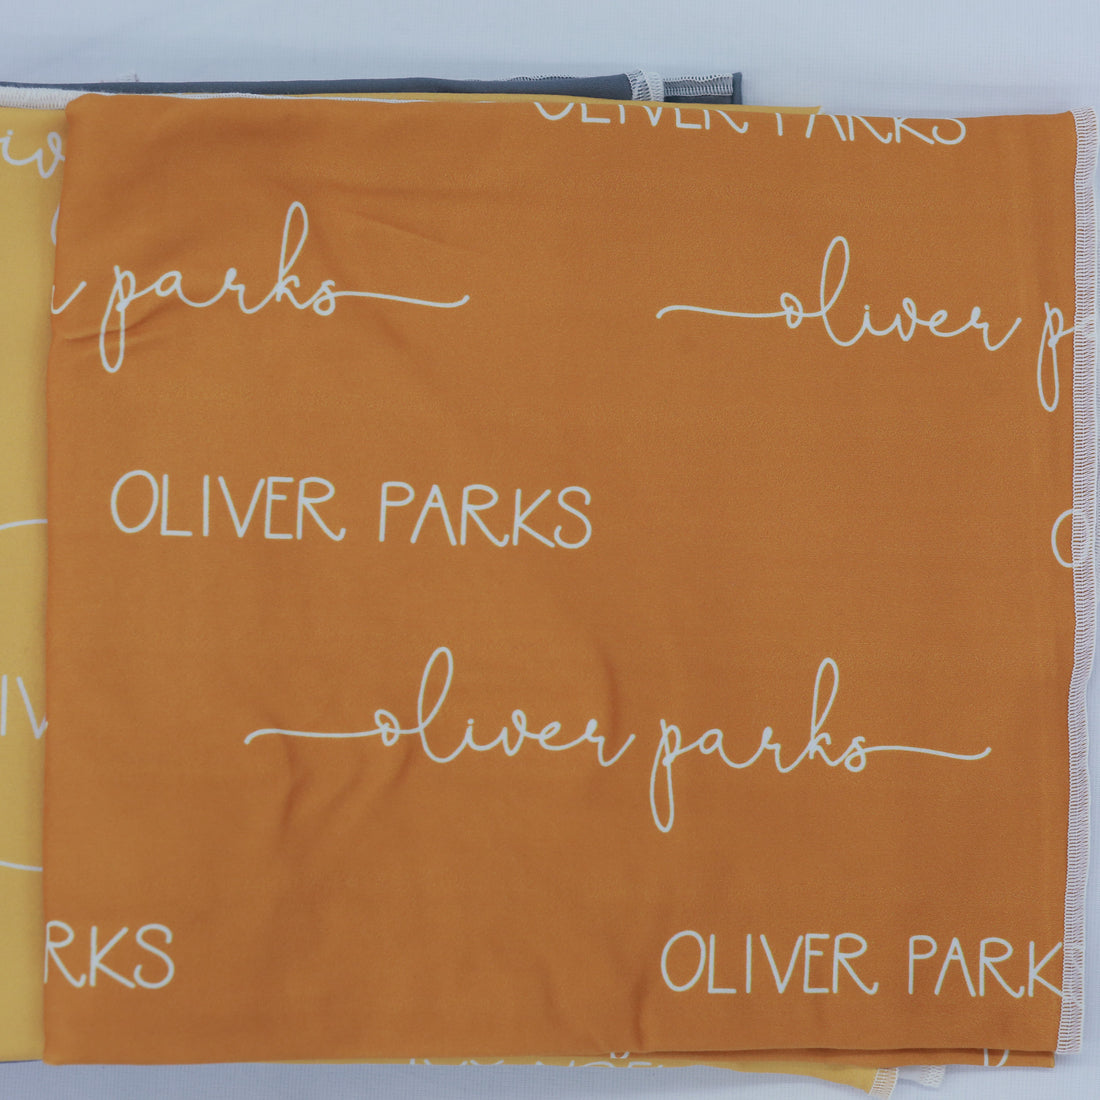 OLIVER PARKS
parks
oliver p
OLIVER PARKS
oliver parks
RKS
OLIVER PARK